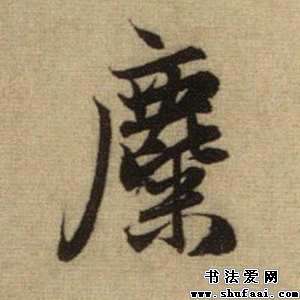 麋
书法爱网
www.shufaai.com